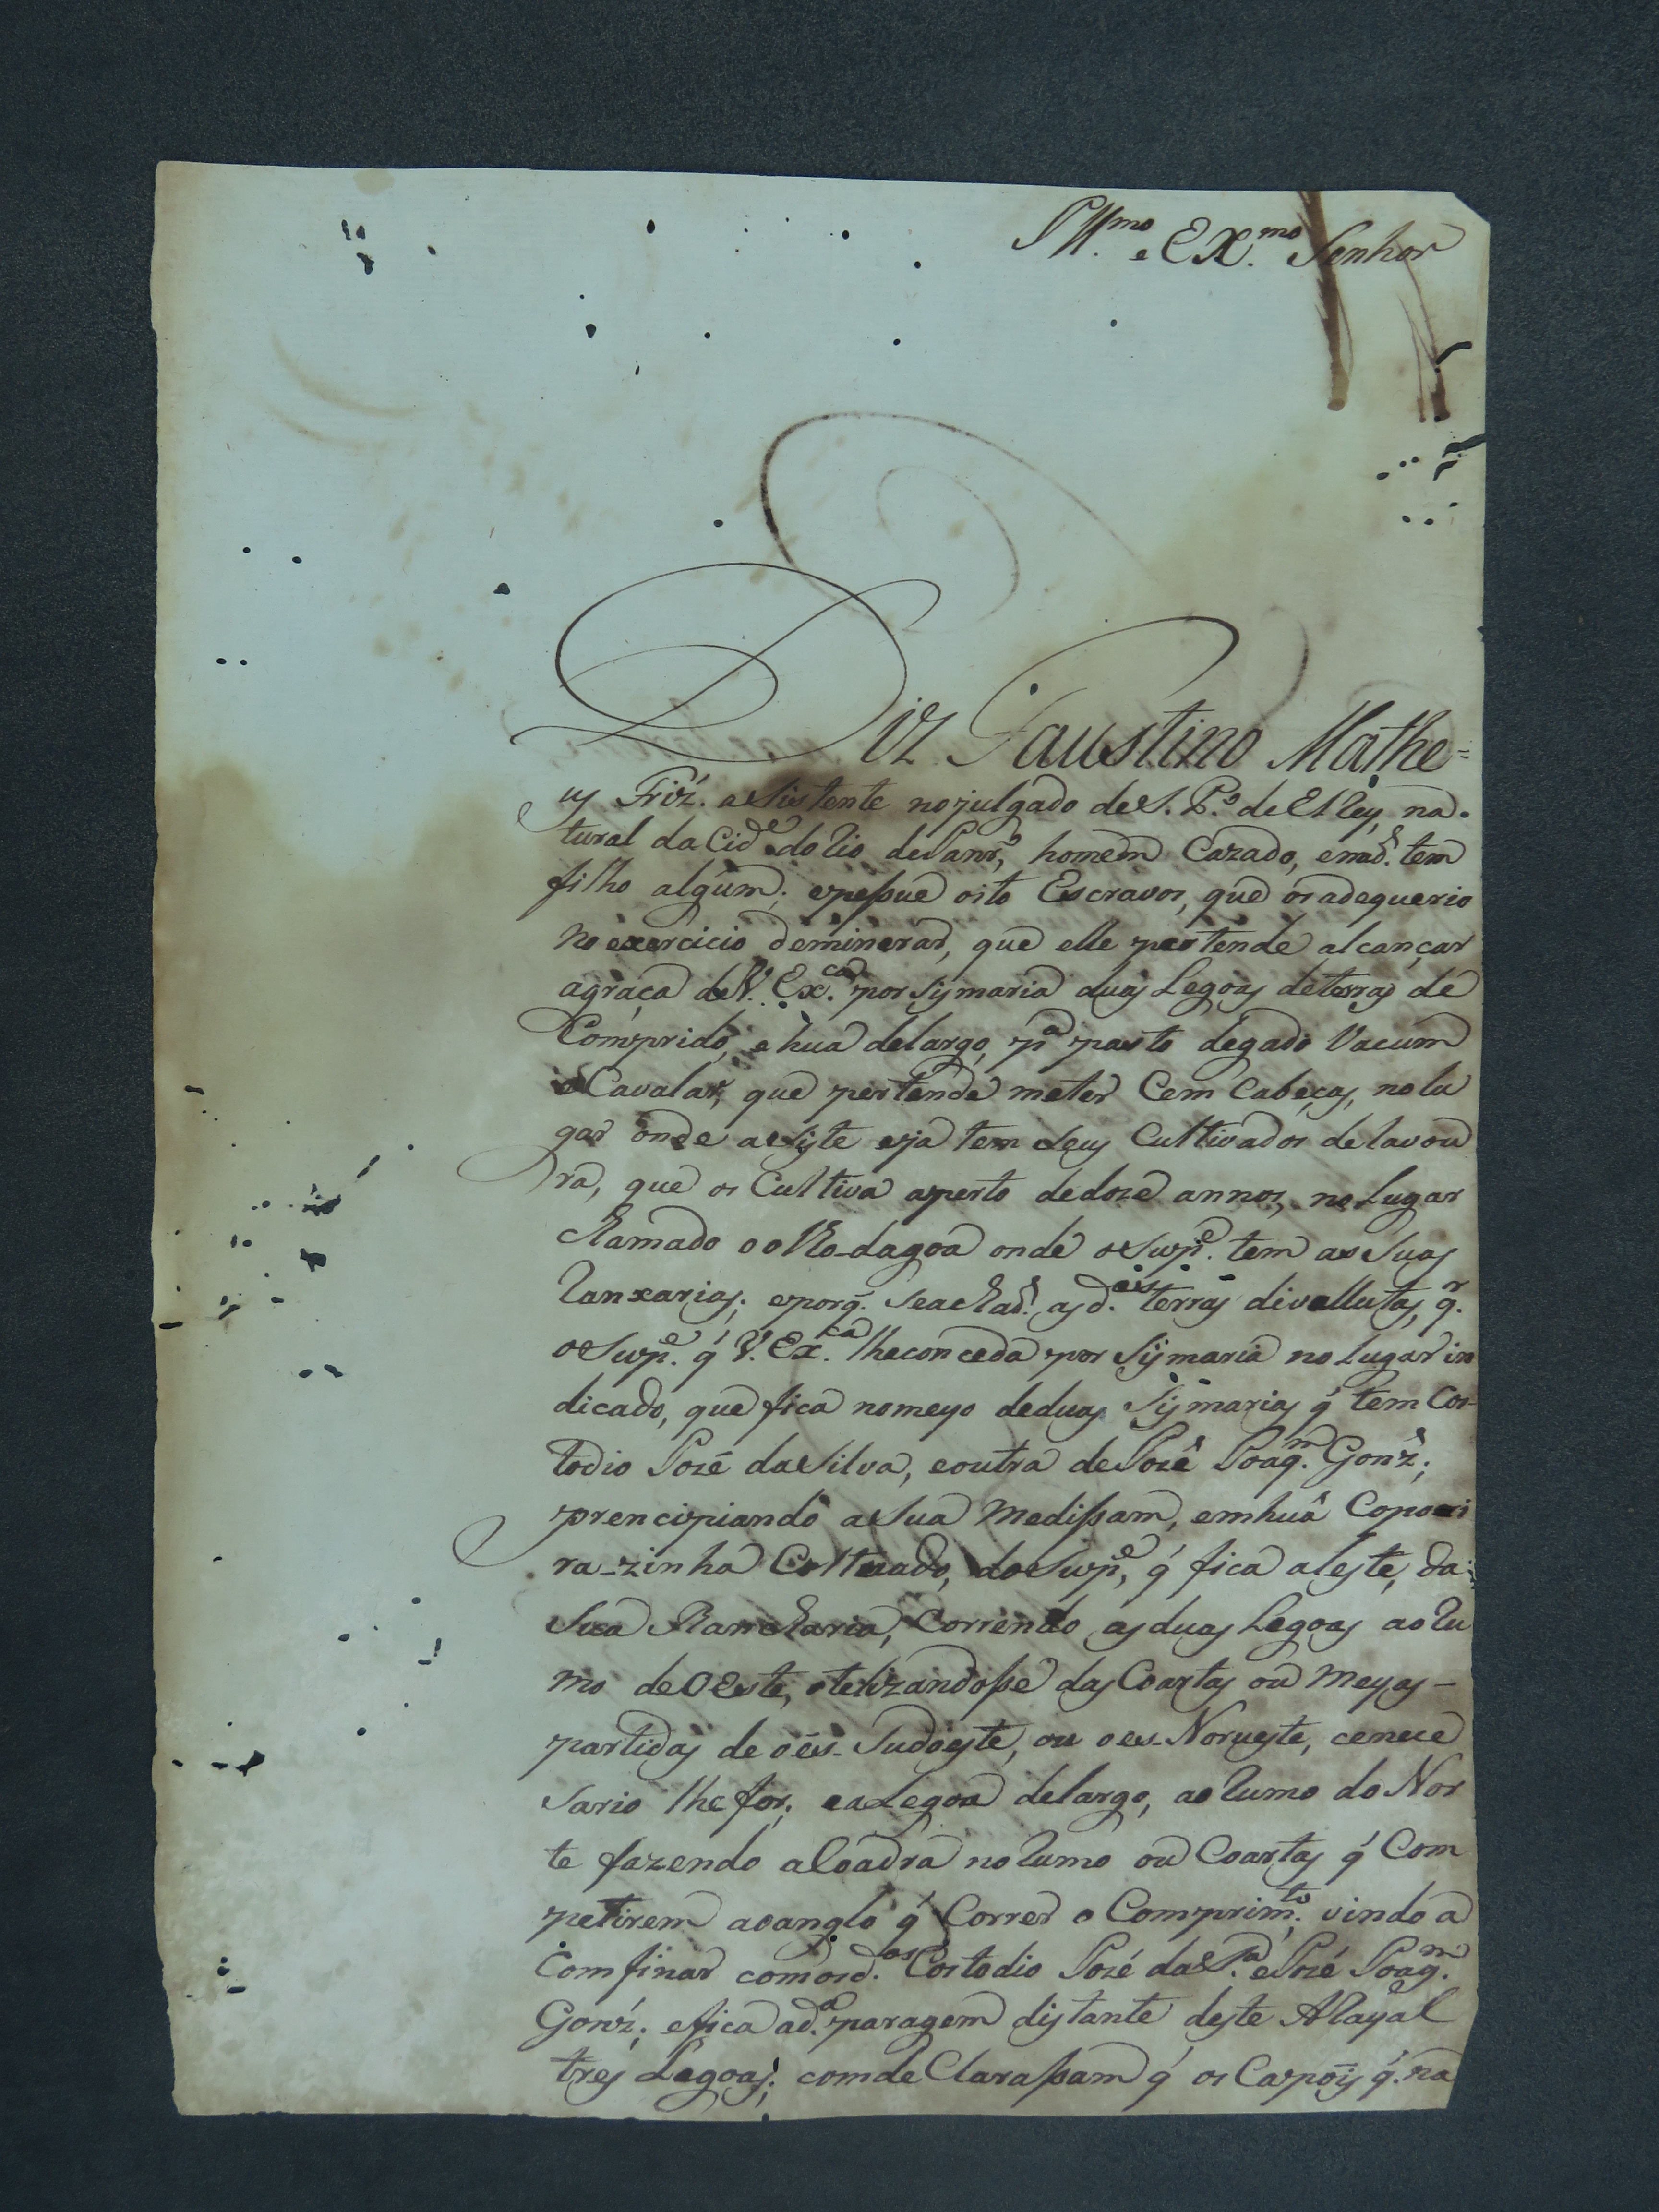 Illmo. e EXmo. Senhor
Diz Faustino Mathe=
us Friz. asistente nojulgado deS. P.º de ElRey, na.
tural da Cide. doRio deJanrº, homem Cazado, enaõ. tem
filho algum; epessue oito Escravos, que os adequerio
no exercicio deminerar, que elle pertende alcançar
agraça deV. Exca. por Sismaria duas Legoas deterras de
Comprido, e hua delargo, pª pasto degado Vacum
e Cavalar, que pertende meter Cem Cabeças, no lu
gar onde asiste eja tem Seus Cultivados de lavou
ra, que os Cultiva aperto dedoze annos, no Lugar
chamado o olho-dagoa onde oSupe. tem as Suas
Ranxarias; eporq. seachaõ. as d.as terras divallutas, q.r
oSupe. q' V. Exca. lheconceda por Sismaria no Lugar in
dicado, que fica nomeyo deduas Sismarias q' tem Cos-
todio Jozé daSilva, eoutra deJozé Joaqm. Gonz.;
prencipiando aSua Medissam, emhuã Capoei
ra-zinha Coltivado, doSupe, q' fica aleste, da
Sua Rancharia, Correndo asduas Legoas aoRu
mo deOeste, otelizandosse das Coartas ou Meyas-
partidas de oés-Sudoeste, ou oes-Norueste, cenece
sario lhe for; eaLegoa delargo, aoRumo do Nor
te fazendo aCoadra noRumo ou Coartas q' Com
petirem aoanglo q' Correr o Comprimto. vindo a
Comfinar comosd.os Costodio Jozé daSª. eJozé Joaqm.
Gonz.; efica ad.ª paragem distante deste ARayal
tres Legoas; comdeClarassam q' os Capoĩs q'. na